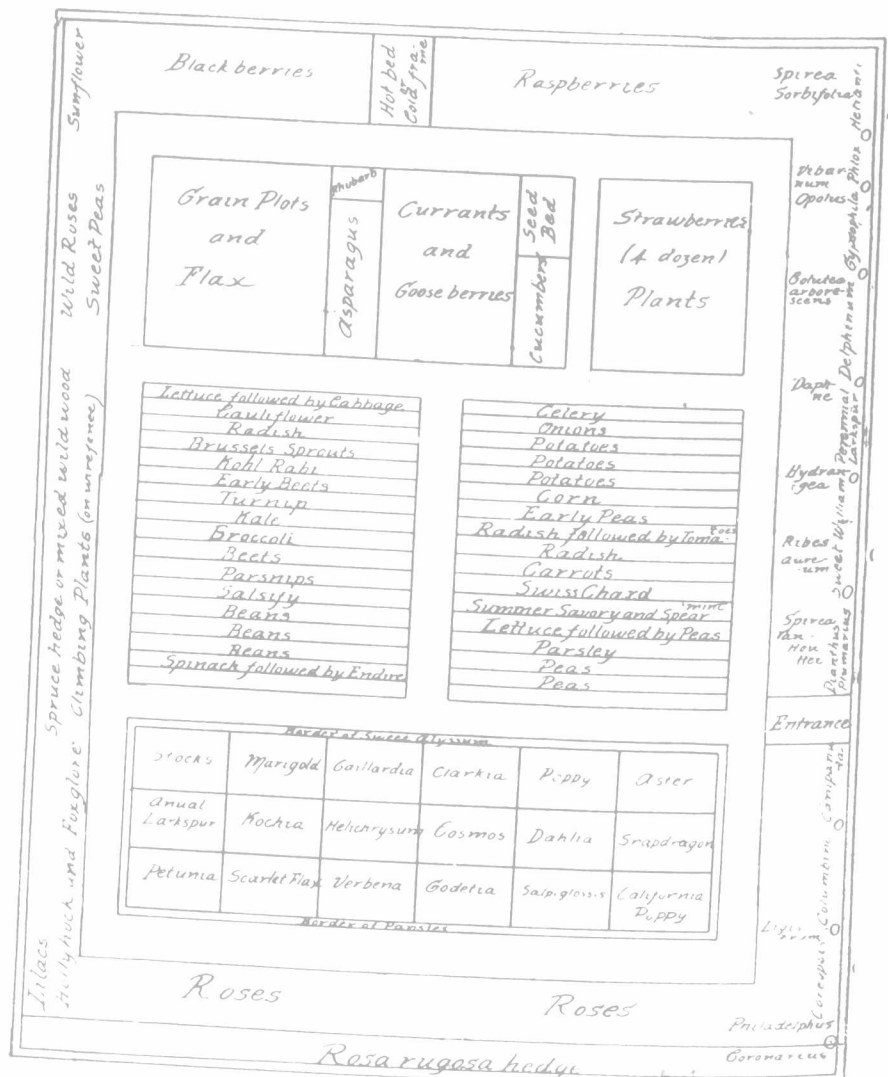 Blackberries
Hot bed
or
Cold fra-
me
Raspberries
Spirea
Sorbifolia
Sunflower
Wild Roses
Sweet Peas
Spruce hedge or mixed wild wood
Climbing Plants (on wire fence)
Hollyhock and Foxglove
Lilacs
Grain Plots
and
Flax
Rhubarb
Asparagus
Currants
and
Gooseberries
Seed
Bed
Cucumbers
Strawberries
(4 dozen)
Plants
Vibar-
num
Opolus
arbore-
scens
Daph-
ne
Hydran-
gea
Ribes
aure-
um
Spirea
Van-
Hou
Entrance
Phlox
Gypsophila
Delphenum
Perennial
Larkspur
Sweet William
Dianthus
Plumarius
Lettuce followed by Cabbage
Cauliflower
Radish
Brussels Sprouts
Kohl Rabi
Early Beets
Turnip
Kale
Broccoli
Beets
Parsnips
Salsify
Beans
Beans
Beans
Spinach followed by Endive
Celery
Onions
Potatoes
Potatoes
Potatoes
Corn
Early Peas
Radish followed by Toma-
toes
Radish
Carrots
Swiss Chard
Summer Savory and Spear
mint
Lettuce followed by Peas
Parsley
Peas
Peas
Border of Sweet Alyssum
Stocks
Marigold
Gaillardia
Clarkia
Poppy
Aster
Anual
Larkspur
Kochia
Helichrysum
Cosmos
Dahlia
Snapdragon
Petunia
Scarlet Flax
Verbena
Godetia
Salpiglossis
California
Poppy
Border of Pansies
Columbine
Roses
Roses
Philadelphus
Coronarius
Rosa rugosa hedge